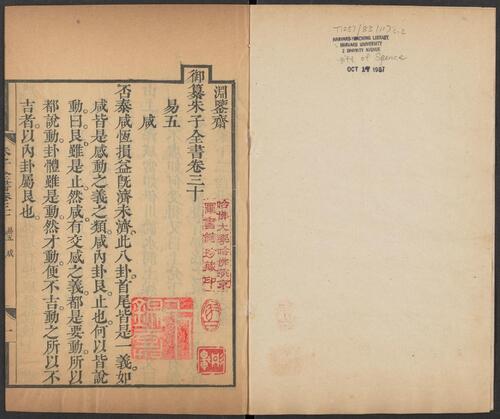 HARVARD-YENCHING LIBRARY
HARVARD UNIVERSITY
2 DIVINITY AVENUE
gift of Spence
OCT 19 1987
淵鑒齋
御纂朱子全書卷三十
易五
咸
否泰咸恆損益旣濟未濟此八卦首尾皆是一義如
咸皆是感動之義之類咸內卦艮止也何以皆說
動曰艮雖是止然咸有交感之義都是要動所以
都說動卦體雖是動然才動便不吉動之所以不
吉者以內卦屬艮也
哈佛大學哈佛燕京
圖書館珍藏印
易五 咸
一